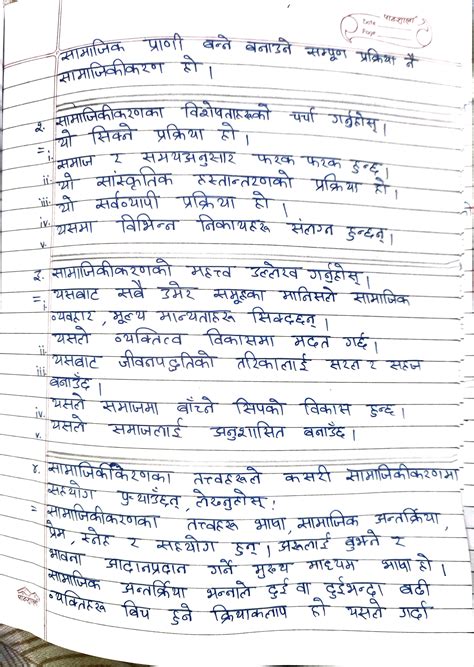 पाठशाला
Date
Page
सामाजिक प्राणी बन्ने बनाउने सम्पूर्ण प्रक्रिया नै
सामाजिकीकरण हो ।
२. सामाजिकीकरणका विशेषताहरूको चर्चा गर्नुहोस् ।
= i. यो सिक्ने प्रक्रिया हो ।
ii. समाज र समयअनुसार फरक फरक हुन्छ ।
iii. यो सांस्कृतिक हस्तान्तरणको प्रक्रिया हो ।
iv. यो सर्वव्यापी प्रक्रिया हो ।
v. यसमा विभिन्न निकायहरू संलग्न हुन्छन् ।
३. सामाजिकीकरणको महत्त्व उल्लेख गर्नुहोस् ।
= i. यसबाट सबै उमेर समूहका मानिसले सामाजिक
व्यवहार, मूल्य मान्यताहरू सिक्दछन् ।
ii. यसले व्यक्तित्व विकासमा मदत गर्छ ।
iii. यसबाट जीवनपद्धतिको तरिकालाई सरल र सहज
बनाउँछ ।
iv. यसले समाजमा बाँच्ने सिपको विकास हुन्छ ।
v. यसले समाजलाई अनुशासित बनाउँछ ।
४. सामाजिकीकरणका तत्त्वहरूले कसरी सामाजिकीकरणमा
सहयोग पुर्‍याउँछन्, लेख्नुहोस् ।
= सामाजिकीकरणका तत्त्वहरू भाषा, सामाजिक अन्तर्क्रिया,
प्रेम, स्नेह र सहयोग हुन् । अरूलाई बुझ्ने र
भावना आदानप्रदान गर्ने मुख्य माध्यम भाषा हो ।
सामाजिक अन्तर्क्रिया भन्नाले दुई वा दुईभन्दा बढी
व्यक्तिहरू बिच हुने क्रियाकलाप हो यसले गर्दा